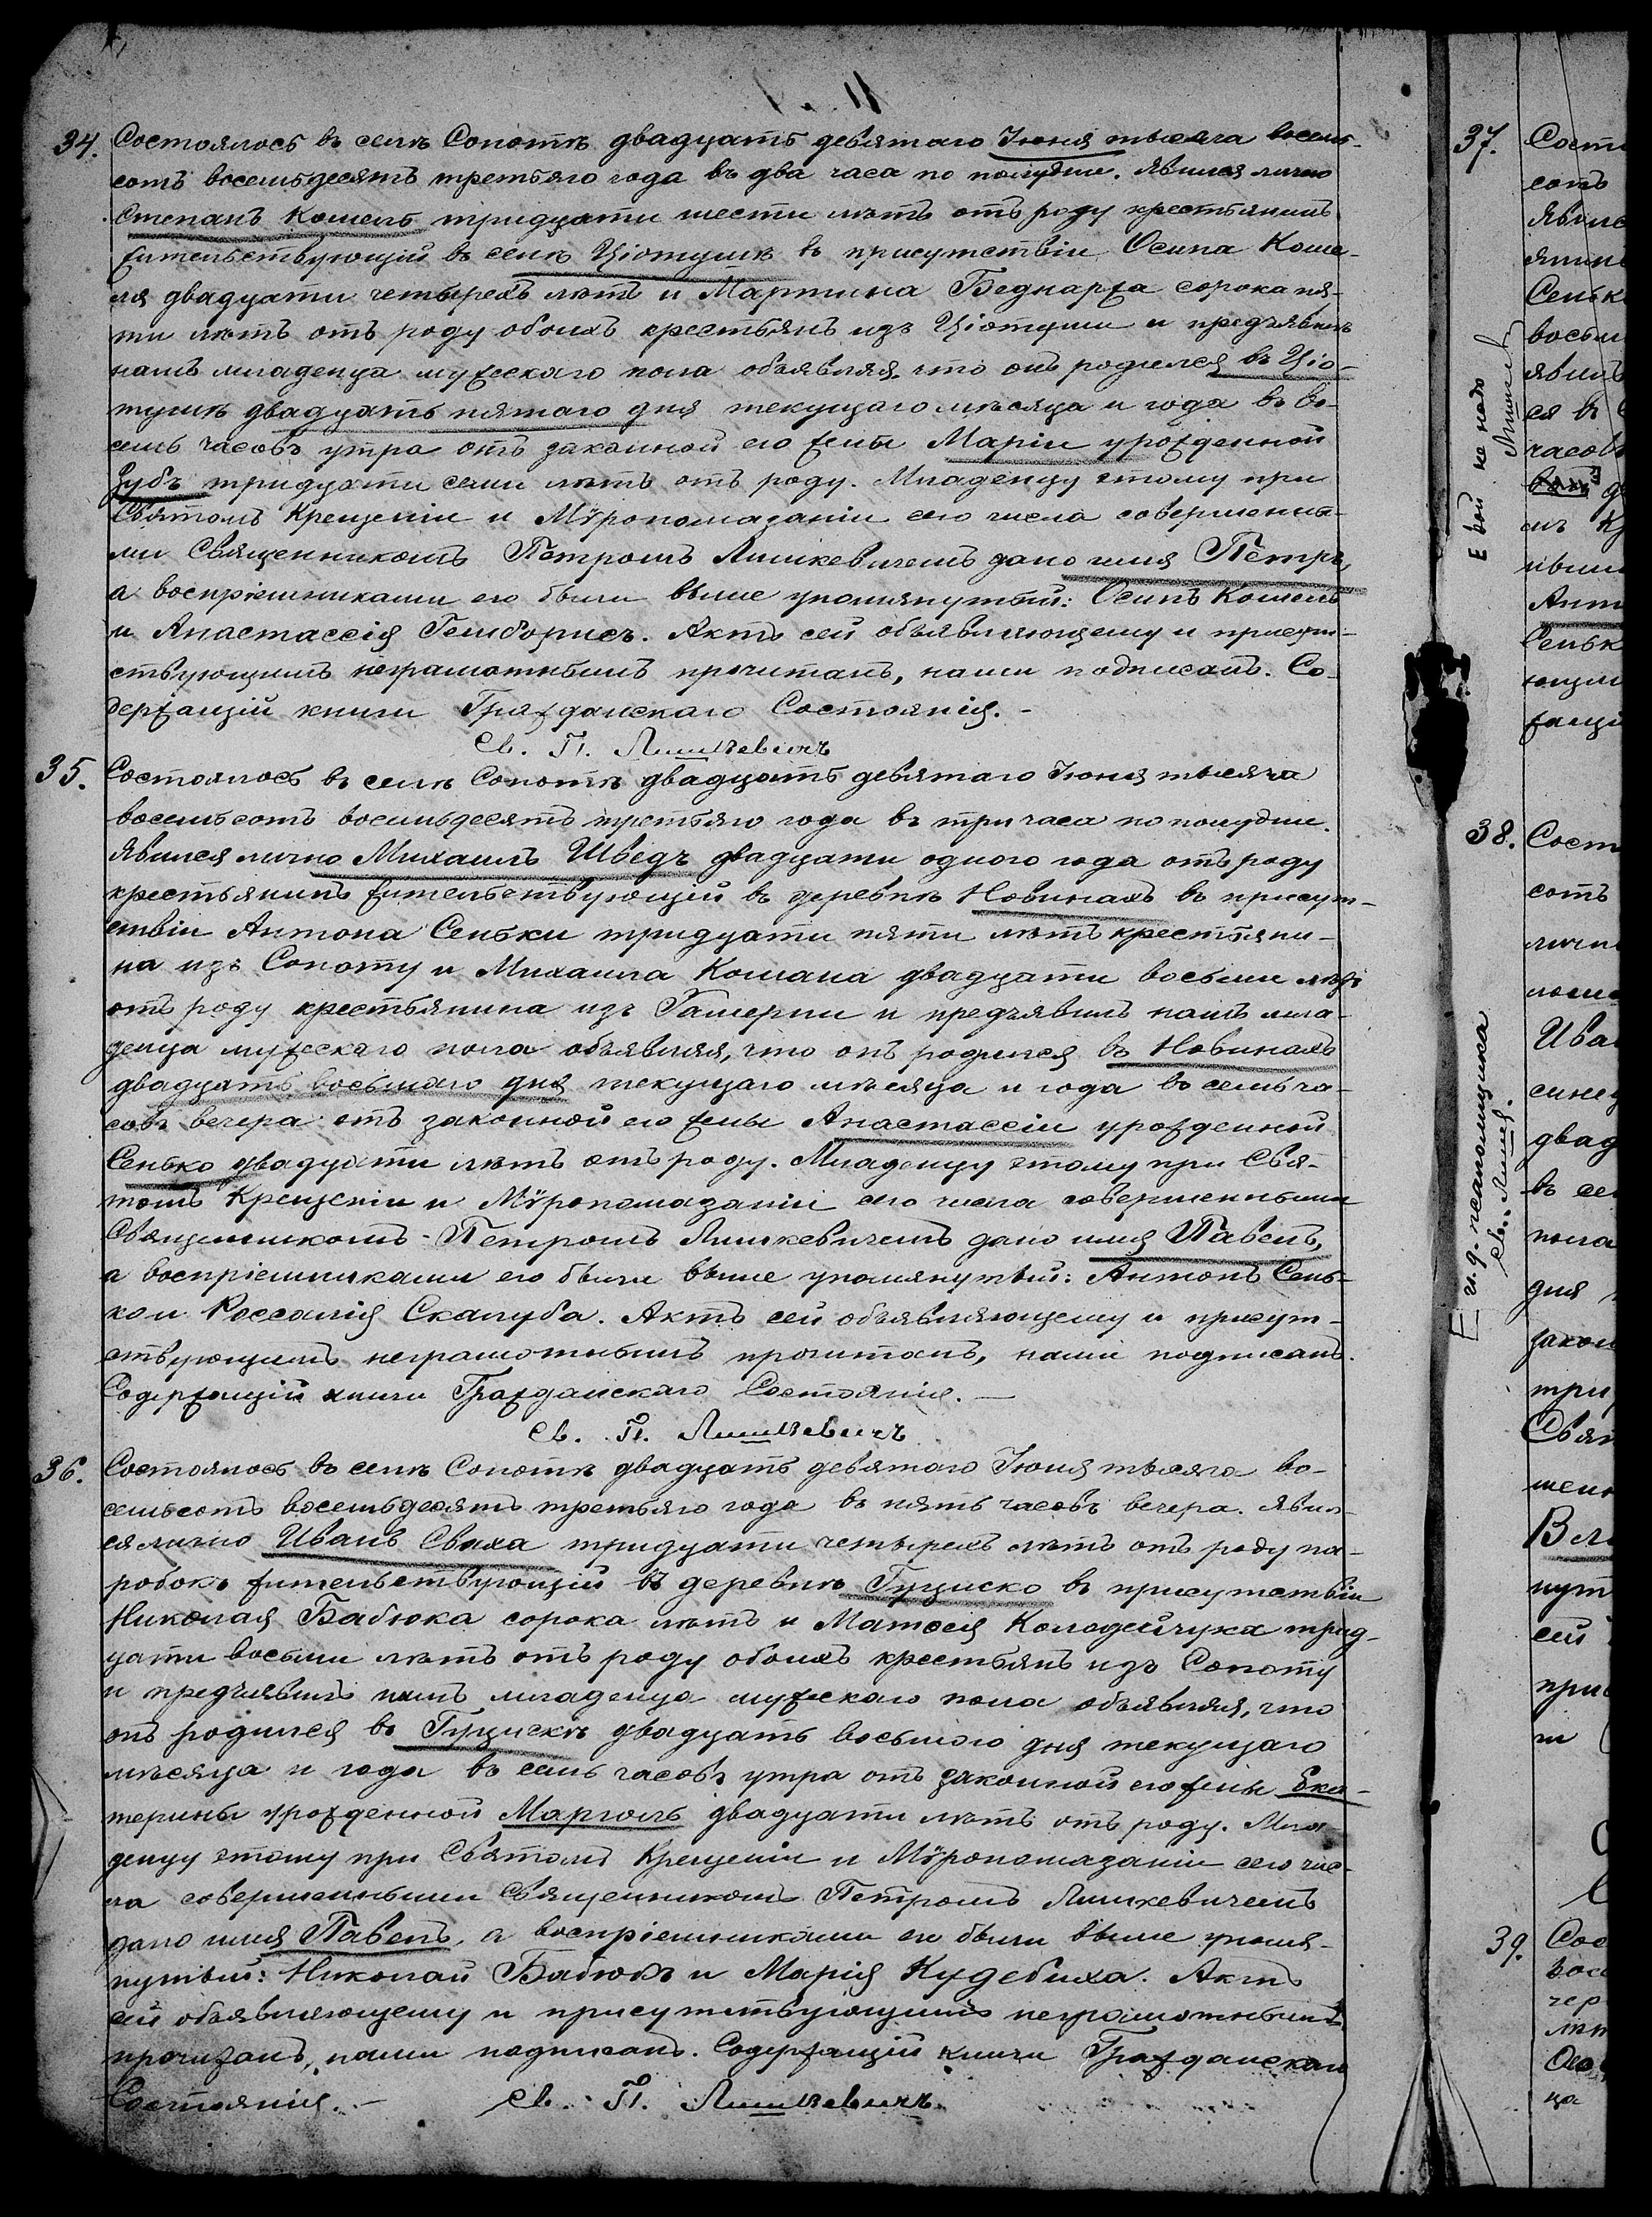 34. Состоялось въ селѣ Сопотѣ двадцать девятаго Іюня тысяча восемь-
сотъ восемьдесятъ третьяго года въ два часа по полудни. Явился лично
Степанъ Кошель тридцати шести лѣтъ отъ роду крестьянинъ
жительствующій въ селѣ Ціотушѣ въ присутствіи Осипа Коше-
ля двадцати четырехъ лѣтъ и Мартина Беднаржа сорока пя-
ти лѣтъ отъ роду обоихъ крестьянъ изъ Ціотуши и предъявилъ
намъ младенца мужескаго пола объявляя, что онъ родился въ Ціо-
тушѣ двадцать пятаго дня текущаго мѣсяца и года въ во-
семь часовъ утра отъ законной его жены Маріи урожденной
Зубъ тридцати семи лѣтъ отъ роду. Младенцу этому при
Святомъ Крещеніи и Мѵропомазаніи сего числа совершенны-
ми Священникомъ Петромъ Лишкевичемъ дано имя Петръ,
а воспріемниками его были выше упомянутый: Осипъ Кошель
и Анастассія Гемборысъ. Актъ сей объявляющему и присут-
ствующимъ неграмотнымъ прочитанъ, нами подписанъ. Со-
держащій книги Гражданскаго Состоянія. -
Св. П. Лишкевичъ
35. Состоялось въ селѣ Сопотѣ двадцать девятаго Іюня тысяча
восемьсотъ восемьдесятъ третьяго года въ три часа по полудни.
Явился лично Михаилъ Шведъ двадцати одного года отъ роду
крестьянинъ жительствующій въ деревнѣ Новинахъ въ присут-
ствіи Антона Сеньки тридцати пяти лѣтъ крестьяни-
на изъ Сопоту и Михаила Комана двадцати восьми лѣтъ
отъ роду крестьянина изъ Гамерни и предъявилъ намъ мла-
денца мужескаго пола объявляя, что онъ родился въ Новинахъ
двадцать восьмаго дня текущаго мѣсяца и года въ семь ча-
совъ вечера отъ законной его жены Анастассіи урожденной
Сенько двадцати лѣтъ отъ роду. Младенцу этому при Свя-
томъ Крещеніи и Мѵропомазаніи сего числа совершенными
Священникомъ - Петромъ Лишкевичемъ дано имя Павелъ,
а воспріемниками его были выше упомянутый: Антонъ Сень-
ко и Россалія Скалуба. Актъ сей объявляющему и присут-
ствующимъ неграмотнымъ прочитанъ, нами подписанъ.
Содержащій книги Гражданскаго Состоянія. —
Св. П. Лишкевичъ
36. Состоялось въ селѣ Сопотѣ двадцать девятаго Іюня тысяча во-
семьсотъ восемьдесятъ третьяго года въ пять часовъ вечера. Явил-
ся лично Иванъ Сваха тридцати четырехъ лѣтъ отъ роду па-
робокъ жительствующій въ деревнѣ Гуциско въ присутствіи
Николая Бабюка сорока лѣтъ и Матѳея Колодейчука трид-
цати восьми лѣтъ отъ роду обоихъ крестьянъ изъ Сопоту
и предъявилъ намъ младенца мужескаго пола объявляя, что
онъ родился въ Гуцискѣ двадцать восьмого дня текущаго
мѣсяца и года въ семь часовъ утра отъ законной его жены Ека-
терины урожденной Марголь двадцати лѣтъ отъ роду. Мла-
денцу этому при Святомъ Крещеніи и Мѵропомазаніи сего чис-
ла совершенными Священникомъ Петромъ Лишкевичемъ
дано имя Павелъ, а воспріемниками его были выше упомя-
нутый: Николай Бабюкъ и Марія Кудебиха. Актъ
сей объявляющему и присутствующимъ неграмотнымъ
прочитанъ, нами подписанъ. Содержащій книги Гражданскаго
Состоянія. — Св. П. Лишкевичъ
37. Сост
сотъ
Явилс
янин
Сеньк
восьм
явилъ
ся въ
часовъ
мъ К
Ант
Сеньк
ющи
жащі
38. Сост
сотъ
лично
Ива
двад
въ се
пола
дня
закон
три
Свят
шен
Вел
нут
сей
при
39. Сос
вос
чер
лѣт
ца